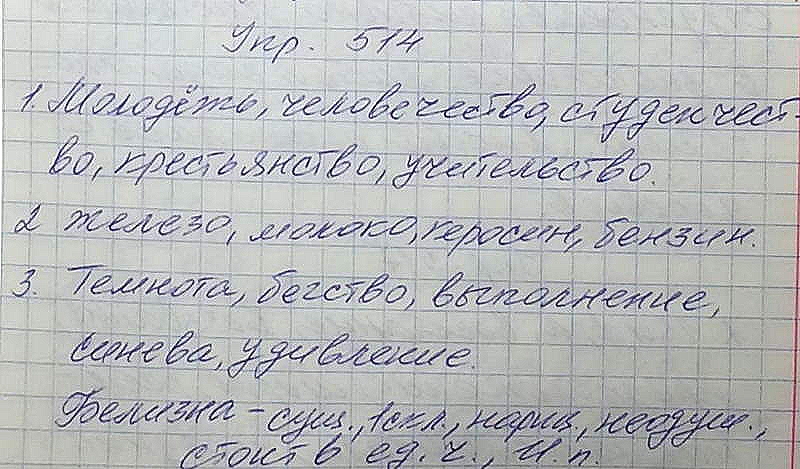 Упр. 514
1. Молодёжь, человечество, студенчест-
во, крестьянство, учительство.
2 Железо, молоко, керосин, бензин.
3. Темнота, бегство, выполнение,
синева, удивление.
Белизна – сущ., 1скл., нариц., неодуш.,
стоит в ед. ч., И. п.